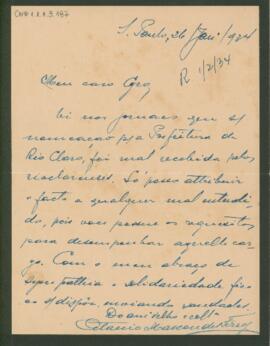 S. Paulo, 26 Jan/934
R 1/2/34
Meu caro Cyro
Li nos jornaes que s/
nomeação p/a Prefeitura de
Rio Claro, foi mal recebida pelos
rioclarenses. Só posso attribuir
o facto a qualquer mal enten-
dido, pois você possue os requisitos
para desempenhar aquelle car-
go. Com o meu abraço de
sympathia e solidariedade fico
ao s/ dispôr, enviando saudades.
Do amigo velho e coll.
Octavio